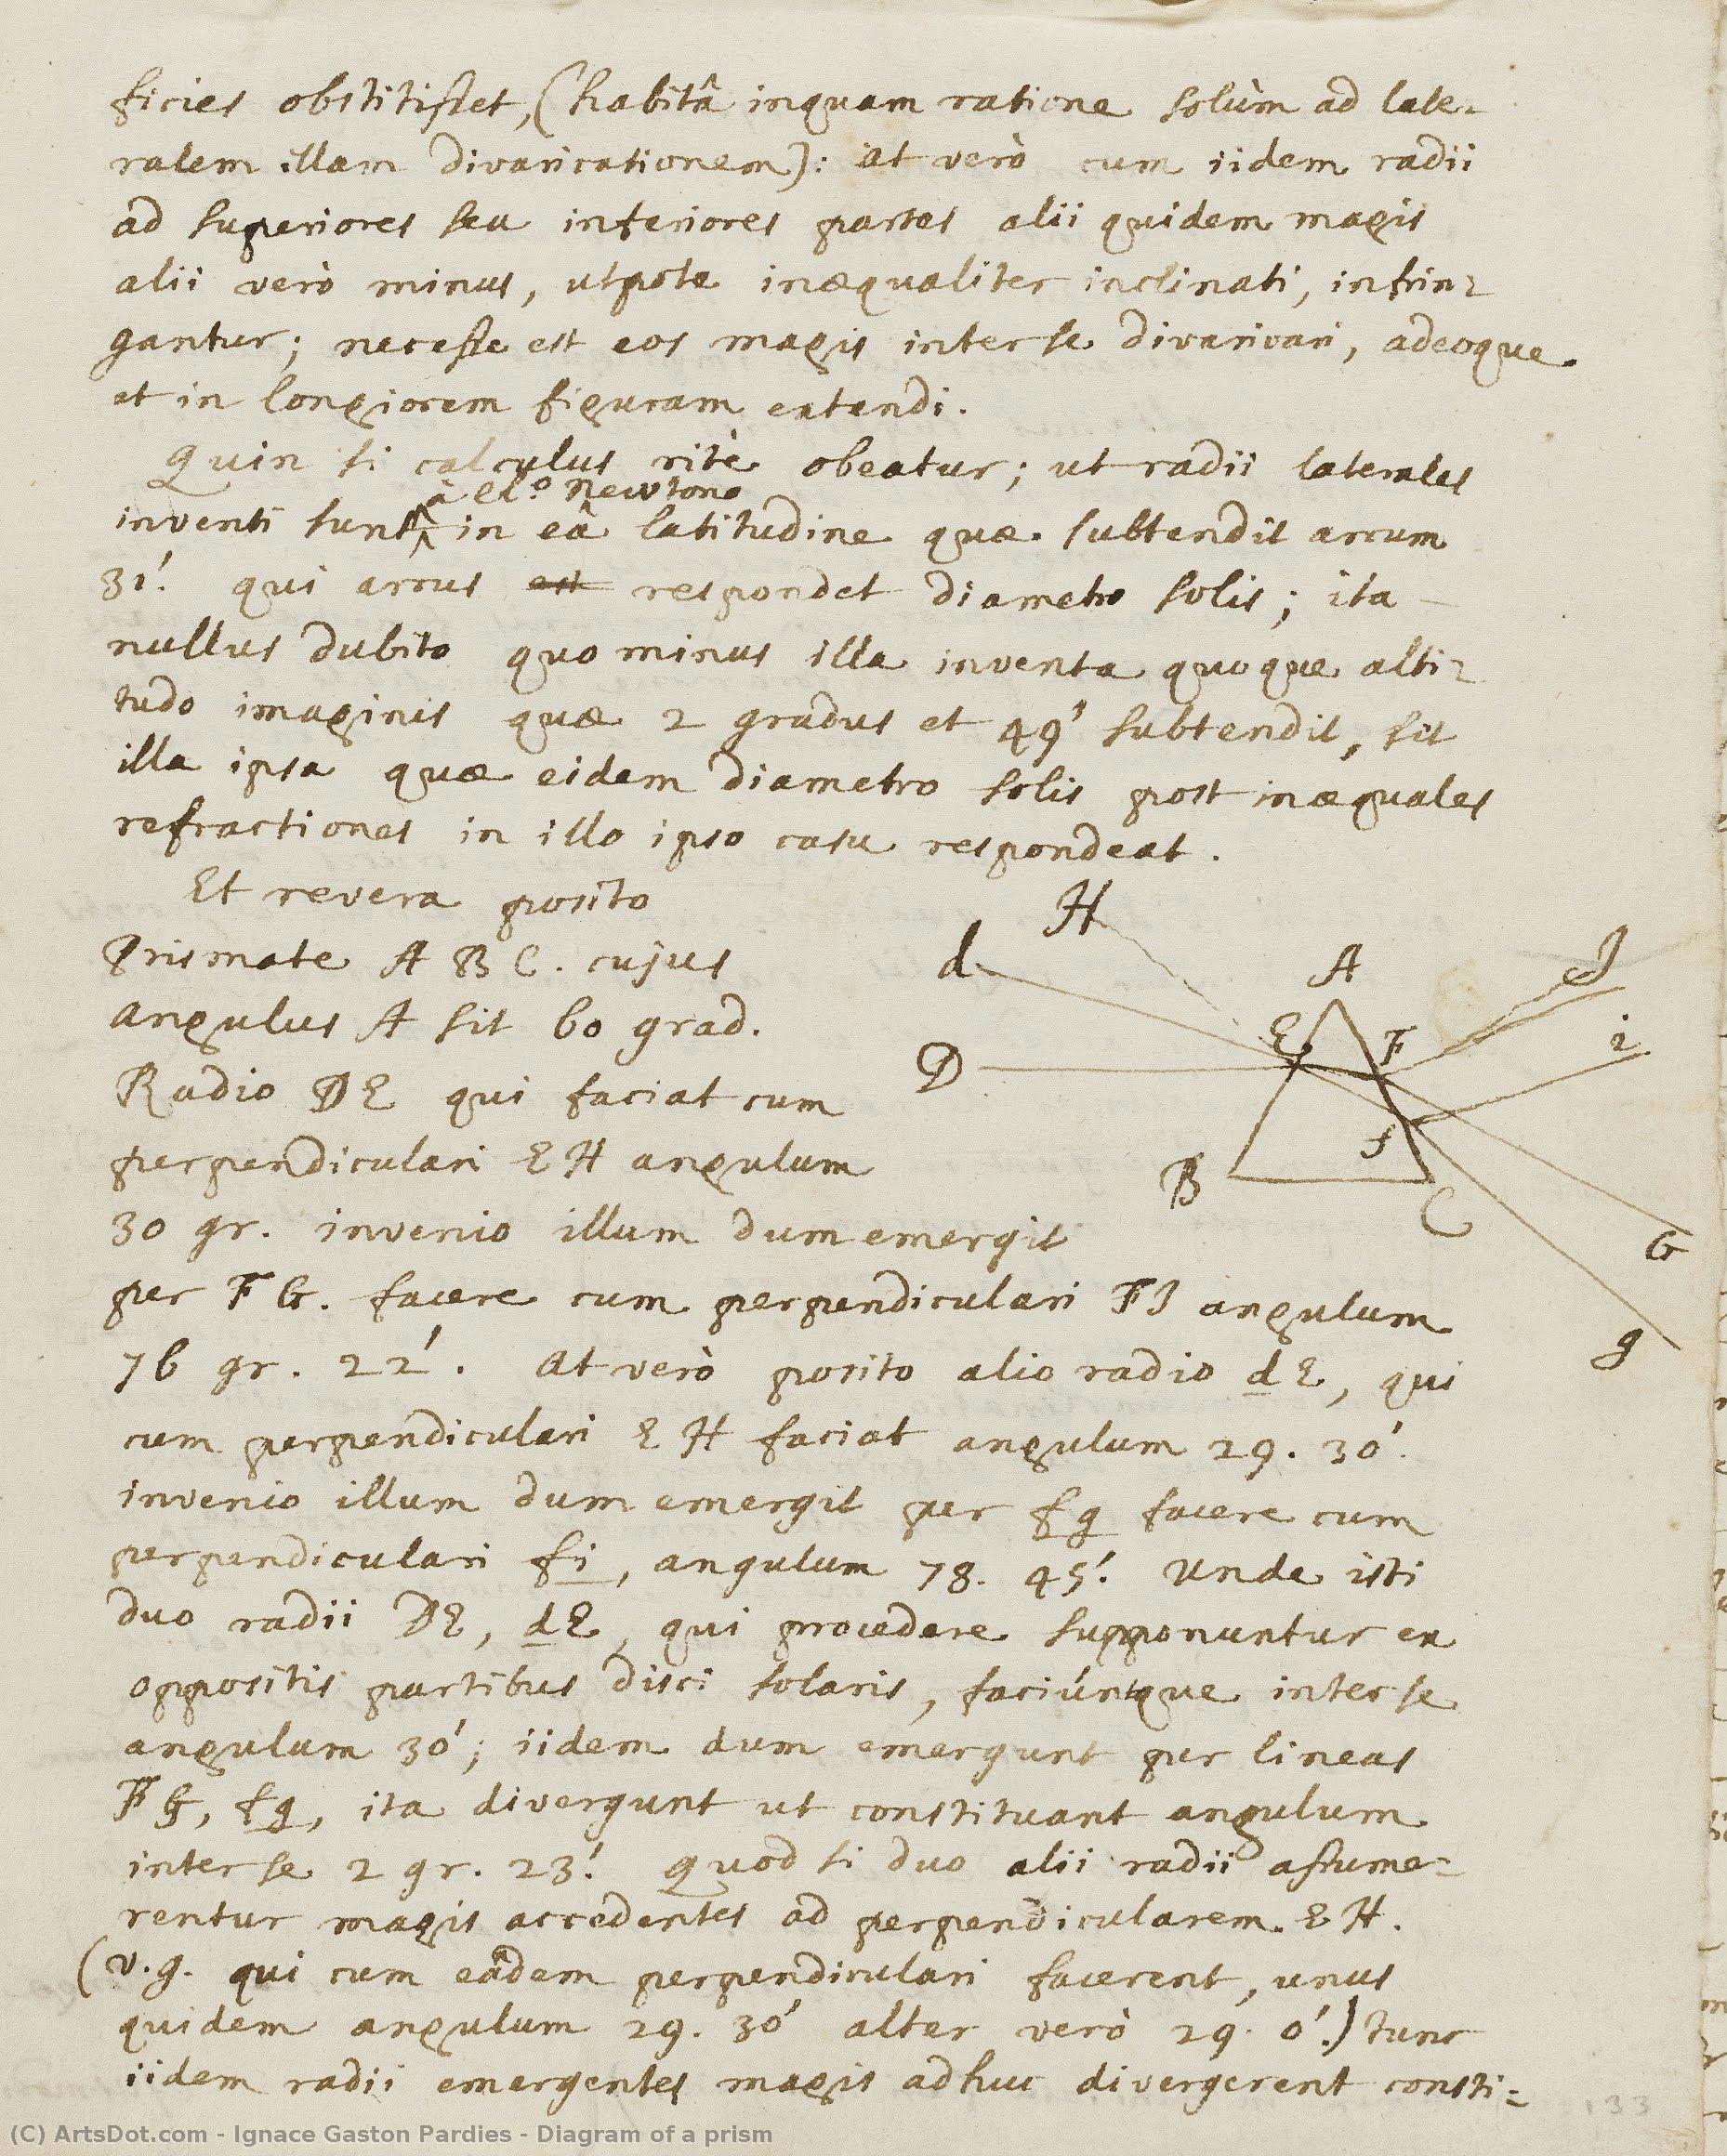 ficies obstitisset, (habitâ inquam ratione solùm ad late-
ralem illam divaricationem): at verò cum iidem radii
ad superiores seu inferiores partes alii quidem magis
alii verò minus, utpote inæqualiter inclinati, infrin-
gantur; necesse est eos magis inter se divaricari, adeoque
et in longiorem figuram extendi.
Quin si calculus ritè obeatur; ut radii laterales
à Cl.o Newtono
inventi sunt in eâ latitudine quæ subtendit arcum
31' qui arcus est respondet diametro solis; ita
nullus dubito quo minus illa inventa quoque alti-
tudo imaginis quæ 2 gradus et 49' subtendit, sit
illa ipsa quæ eidem diametro solis post inæquales
refractiones in illo ipso casu respondeat.
Et revera posito
Prismate A B C. cujus
angulus A sit 60 grad.
Radio DE qui faciat cum
perpendiculari EH angulum
30 gr. invenio illum dum emergit
per F G. facere cum perpendiculari FI angulum
76 gr. 22'. At verò posito alio radio dE, qui
cum perpendiculari E H faciat angulum 29. 30'.
invenio illum dum emergit per fg facere cum
perpendiculari fi, angulum 78. 45'. Unde isti
duo radii DE, dE, qui procedere supponuntur ex
oppositis partibus disci solaris, faciúntque inter se
angulum 30'; iidem dum emergunt per lineas
FG, fg, ita divergunt ut constituant angulum
inter se 2 gr. 23'. Quod si duo alii radii assume-
rentur magis accedentes ad perpendicularem EH.
(v.g. qui cum eâdem perpendiculari facerent, unus
quidem angulum 29. 30' alter verò 29. 0'.) tunc
iidem radii emergentes magis adhuc divergerent consti-
H
d
A
I
D
E
F
i
f
B
C
G
g
133
(C) ArtsDot.com - Ignace Gaston Pardies - Diagram of a prism